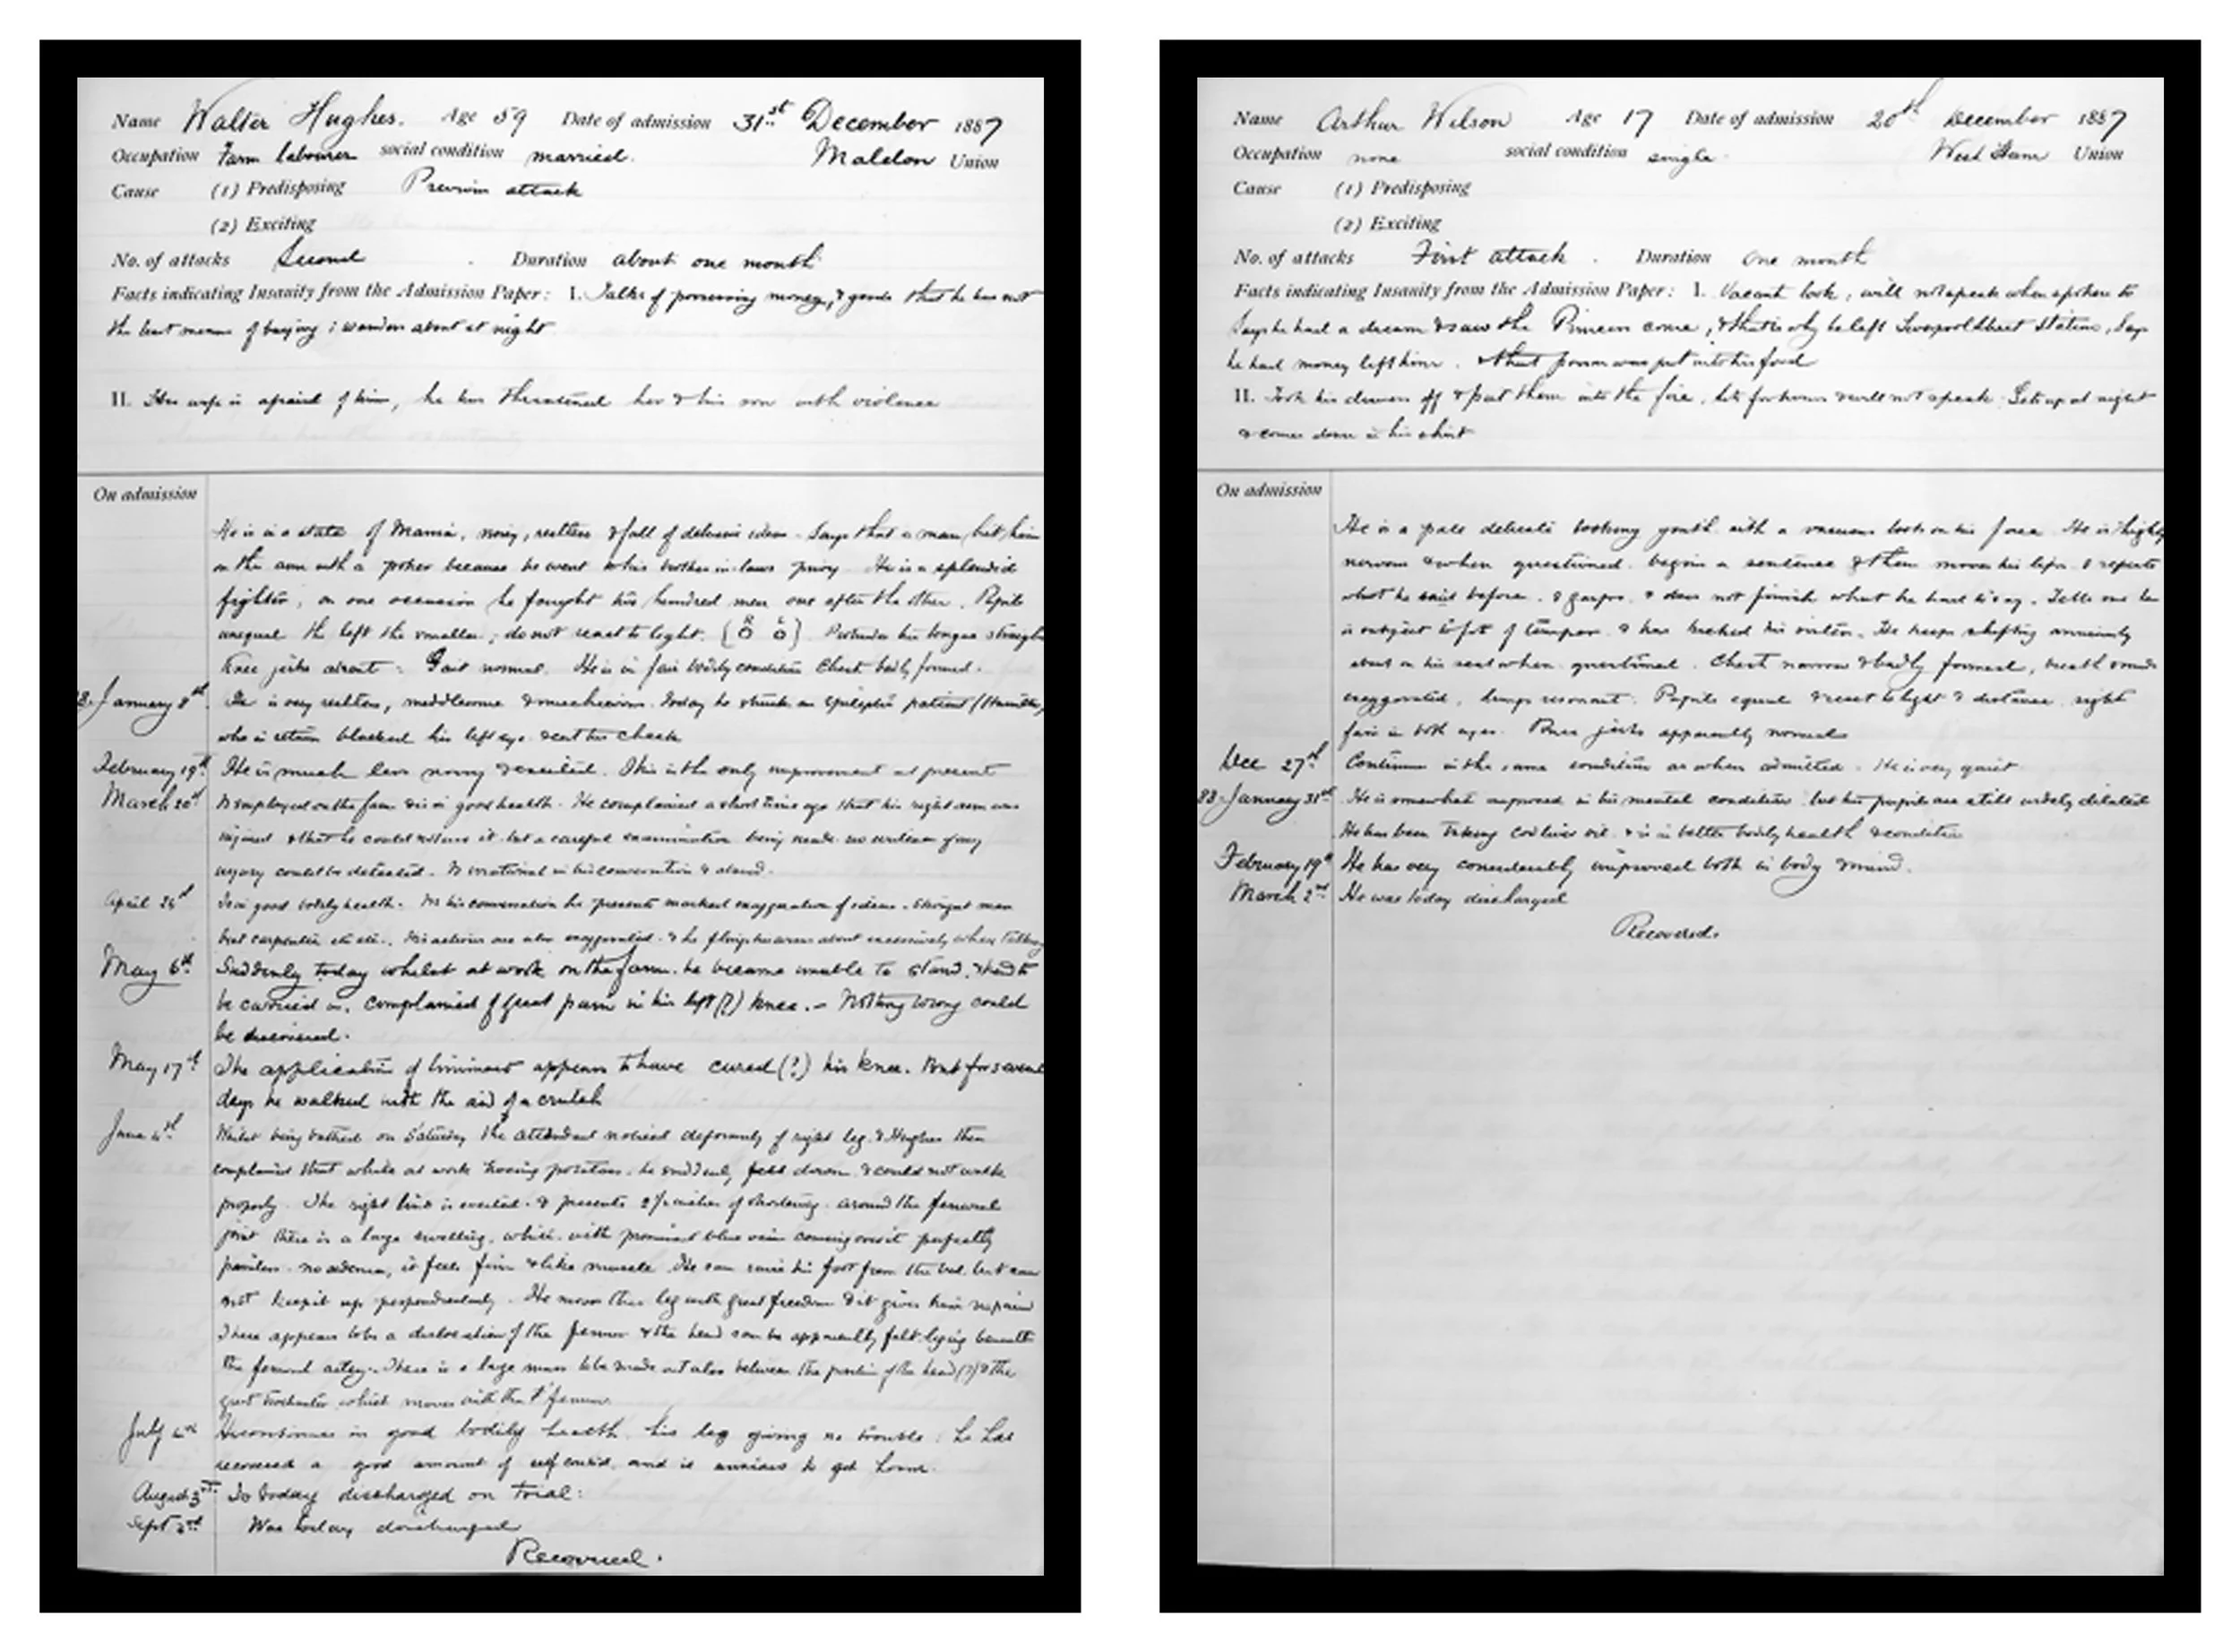 Name Walter Hughes. Age 59 Date of admission 31st December 1887
Occupation Farm labourer social condition married. Maldon Union
Cause (1) Predisposing Previous attack
(2) Exciting
No. of attacks Second . Duration about one month
Facts indicating Insanity from the Admission Paper: I. Talks of possessing money, & goods that he has not
the least means of buying; wanders about at night
II. His wife is afraid of him, he has threatened her & his son with violence
On admission
He is in a state of Mania, noisy, restless & full of delusive ideas. Says that a man hit him
on the arm with a poker because he went to his brother-in-laws privy. He is a splendid
fighter, on one occasion he fought two hundred men one after the other. Pupils
unequal the left the smaller; do not react to light. {R L} Protrudes his tongue straight
Knee jerks absent: Gait normal. He is in fair bodily condition Chest badly formed.
January 8th He is very restless, meddlesome & mischievous. Today he struck an epileptic patient (Hamilton,
who in return blackened his left eye & cut his cheek
February 19th He is much less noisy & excited. This is the only improvement at present
March 20th Is employed on the farm & is in good health. He complained a short time ago that his right arm was
injured & that he could not use it but a careful examination being made no evidence of any
injury could be detected. Is irrational in his conversation & absurd.
April Is in good bodily health. In his conversation he presents marked exaggeration of ideas. Strongest man
best carpenter etc etc. His actions are also exaggerated. & he flings his arms about excessively when talking
May 6th Suddenly today whilst at work on the farm. he became unable to stand, & had to
be carried in. complained of great pain in his left (?) knee. – Nothing wrong could
be discovered.
May 17th The application of liniment appears to have cured (?) his knee. But for several
days he walked with the aid of a crutch
June 4th Whilst being bathed on Saturday the attendant noticed deformity of right leg. & Hughes then
complained that while at work hoeing potatoes. he suddenly fell down & could not walk
properly. The right limb is everted. & presents 2½ inches of shortening. around the femoral
joint there is a large swelling, white, with prominent blue veins coming over it perfectly
painless. no oedema, it feels firm & like muscle. He can raise his foot from the bed. but can
not keep it up perpendicularly. He moves this leg with great freedom & it gives him no pain
There appears to be a dislocation of the femur & the head can be apparently felt lying beneath
the femoral artery. There is a large mass to be made out also between the position of the head (?) & the
great trochanter which moves with the femur.
July He continues in good bodily health his leg giving no trouble: he has
recovered a good amount of self control and is anxious to get home.
August 3rd Is today discharged on trial:
Sept 3rd Was today discharged
Recovered.
Name Arthur Wilson Age 17 Date of admission 20th December 1887
Occupation none social condition single. West Ham Union
Cause (1) Predisposing
(2) Exciting
No. of attacks First attack . Duration One month
Facts indicating Insanity from the Admission Paper: I. Vacant look, will not speak when spoken to
Says he had a dream & saw the come, & that is why he left Liverpool Street Station, Says
he had money left him. & that poison was put into his food
II. Took his drawers off & put them into the fire, sits for hours & will not speak. Gets up at night
& comes down in his shirt
On admission
He is a pale delicate looking youth with a vacuous look on his face. He is highly
nervous & when questioned. begins a sentence & then moves his lips. & repeats
what he said before. & gasps. & does not finish what he had to say. Tells me he
is subject to fits of temper & has kicked his sister. He keeps shifting uneasily
about on his seat when questioned. Chest narrow & badly formed, breath sounds
exaggerated, lungs resonant. Pupils equal & react to light & distance. sight
fair in both eyes. Knee jerks apparently normal
Dec 27th Continues in the same condition as when admitted. He is very quiet
88 January 31st He is somewhat improved in his mental condition but his pupils are still widely dilated
He has been taking cod liver oil. & is in better bodily health & condition
February 19th He has very considerably improved both in body & mind.
March 2nd He was today discharged
Recovered.